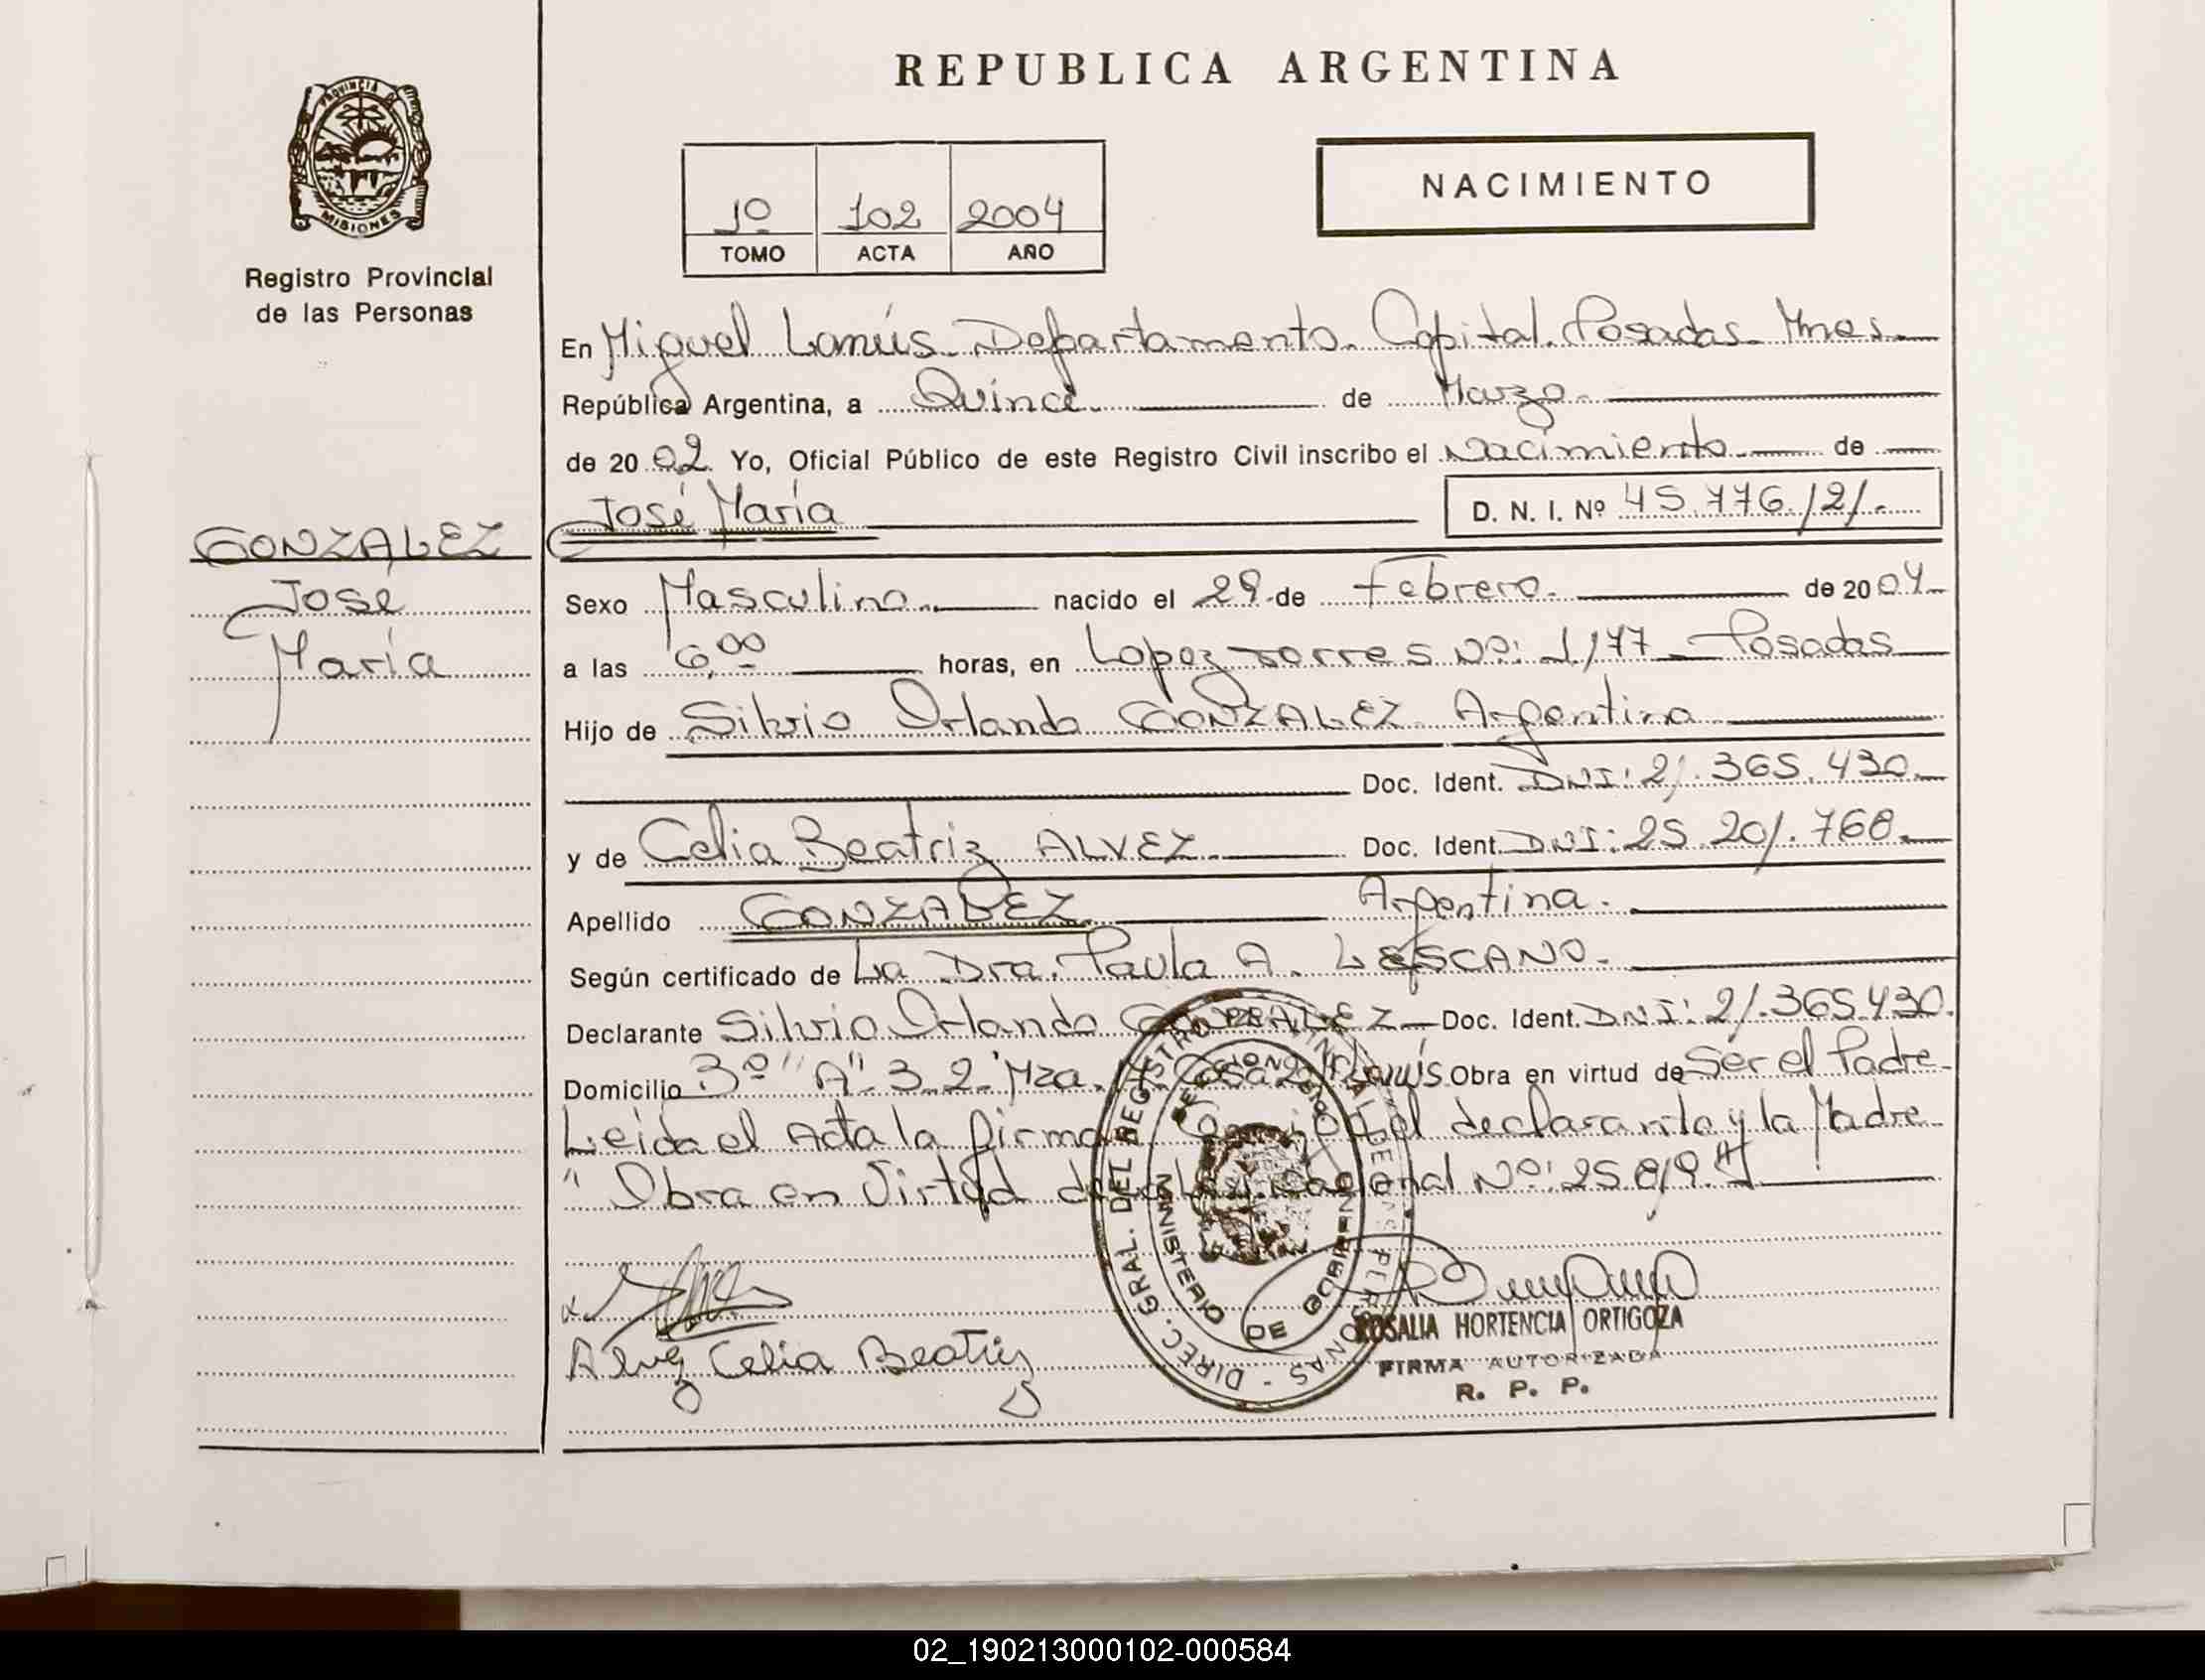 REPUBLICA ARGENTINA
PROVINCIA DE
MISIONES
Registro Provincial
de las Personas
1º 102 2004
TOMO ACTA AÑO
NACIMIENTO
En Miguel Lanús Departamento Capital Posadas Mnes
República Argentina, a Quince de Marzo
de 2002 Yo, Oficial Público de este Registro Civil inscribo el Nacimiento de
José María D. N. I. Nº 45.776.121.
GONZALEZ
José
María
Sexo Masculino nacido el 29 de Febrero de 2004
a las 6,00 horas, en Lopez Torres Nº: 1.177 - Posadas
Hijo de Silvio Orlando GONZALEZ Argentina
Doc. Ident. DNI: 21.365.430
y de Celia Beatriz ALVEZ Doc. Ident. DNI: 25.201.768
Apellido GONZALEZ Argentina.
Según certificado de La Dra. Paula A. LESCANO.
Declarante Silvio Orlando GONZALEZ Doc. Ident. DNI: 21.365.430.
Domicilio 3º "A" 3.2 Mza. Casa 2 Lanús Obra en virtud de Ser el Padre
Leida el Acta la firma Conmigo el declarante y la Madre
" Obra en Virtud de la Ley Nacional Nº: 25.819 "
Alvez Celia Beatriz
DIREC. GRAL. DEL REGISTRO PROVINCIAL DE LAS PERSONAS
MINISTERIO DE GOBIERNO
ROSALIA HORTENCIA ORTIGOZA
FIRMA AUTORIZADA
R. P. P.
02_190213000102-000584